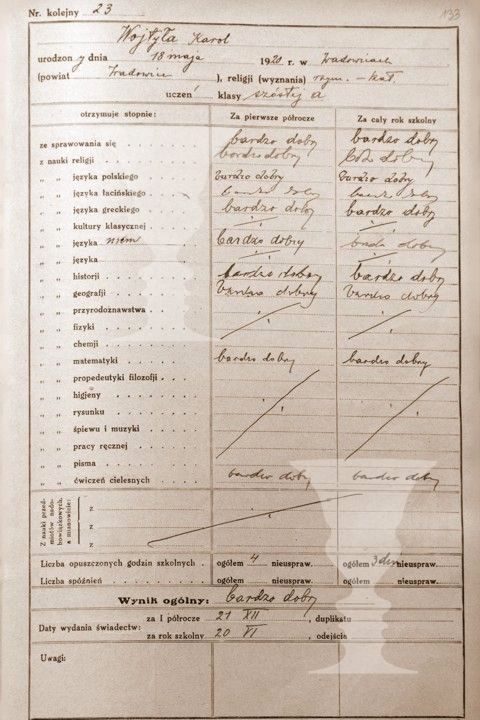 Nr. kolejny 23 133
Wojtyła Karol
urodzony dnia 18 maja 1920 r. w Wadowicach
(powiat Wadowice ), religji (wyznania) rzym. - kat.
uczeń klasy szóstej a
otrzymuje stopnie: Za pierwsze półrocze Za cały rok szkolny
ze sprawowania się bardzo dobry bardzo dobry
z nauki religji bardzo dobry b. dobry
„ „ języka polskiego bardzo dobry bardzo dobry
„ „ języka łacińskiego bardzo dobry bardzo dobry
„ „ języka greckiego bardzo dobry bardzo dobry
„ „ kultury klasycznej
„ „ języka niem bardzo dobry bardzo dobry
„ „ języka
„ „ historji bardzo dobry bardzo dobry
„ „ geografji bardzo dobry bardzo dobry
„ „ przyrodoznawstwa
„ „ fizyki
„ „ chemji
„ „ matematyki bardzo dobry bardzo dobry
„ „ propedeutyki filozofji
„ „ higjeny
„ „ rysunku
„ „ śpiewu i muzyki
„ „ pracy ręcznej
„ „ pisma
„ „ ćwiczeń cielesnych bardzo dobry bardzo dobry
Z nauki przed-
miotów nado-
bowiązkowych,
a mianowicie:
z
z
z
Liczba opuszczonych godzin szkolnych ogółem 4 nieuspraw. ogółem 3 nieuspraw.
Liczba spóźnień ogółem nieuspraw. ogółem nieuspraw.
Wynik ogólny: bardzo dobry
Daty wydania świadectw: za I półrocze 21 XII , duplikatu
za rok szkolny 20 VI , odejścia
Uwagi: